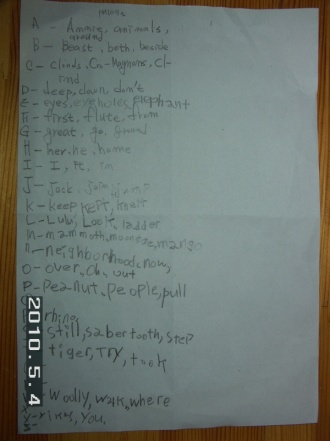 A - Ammie, animals,
around
B - Beast, both, beside
C - clouds, Cro-Magnons, Cl-
D - deep, down, don't
E - eyes, eyeholes, elephant
F - first, flute, from
G - great, go, ground
H - her, he, home
I - I, it, in
J - Jack, Join, jump
K - keep, kept, knelt
L - Lulu, Look, ladder
M - mammoth, mango
n - neighborhoods, now,
O - over, Oh, out
P - Peanut, people, pull
rhino,
still, sabertooth, step
tiger, Try, took
Woolly, walk, where
you,
2010.5.4